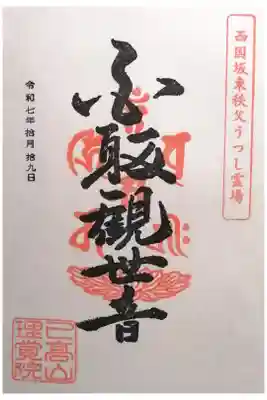 西国坂東秩父うつし霊場
觀世音
令和七年拾月拾九日
已高山
理覚院